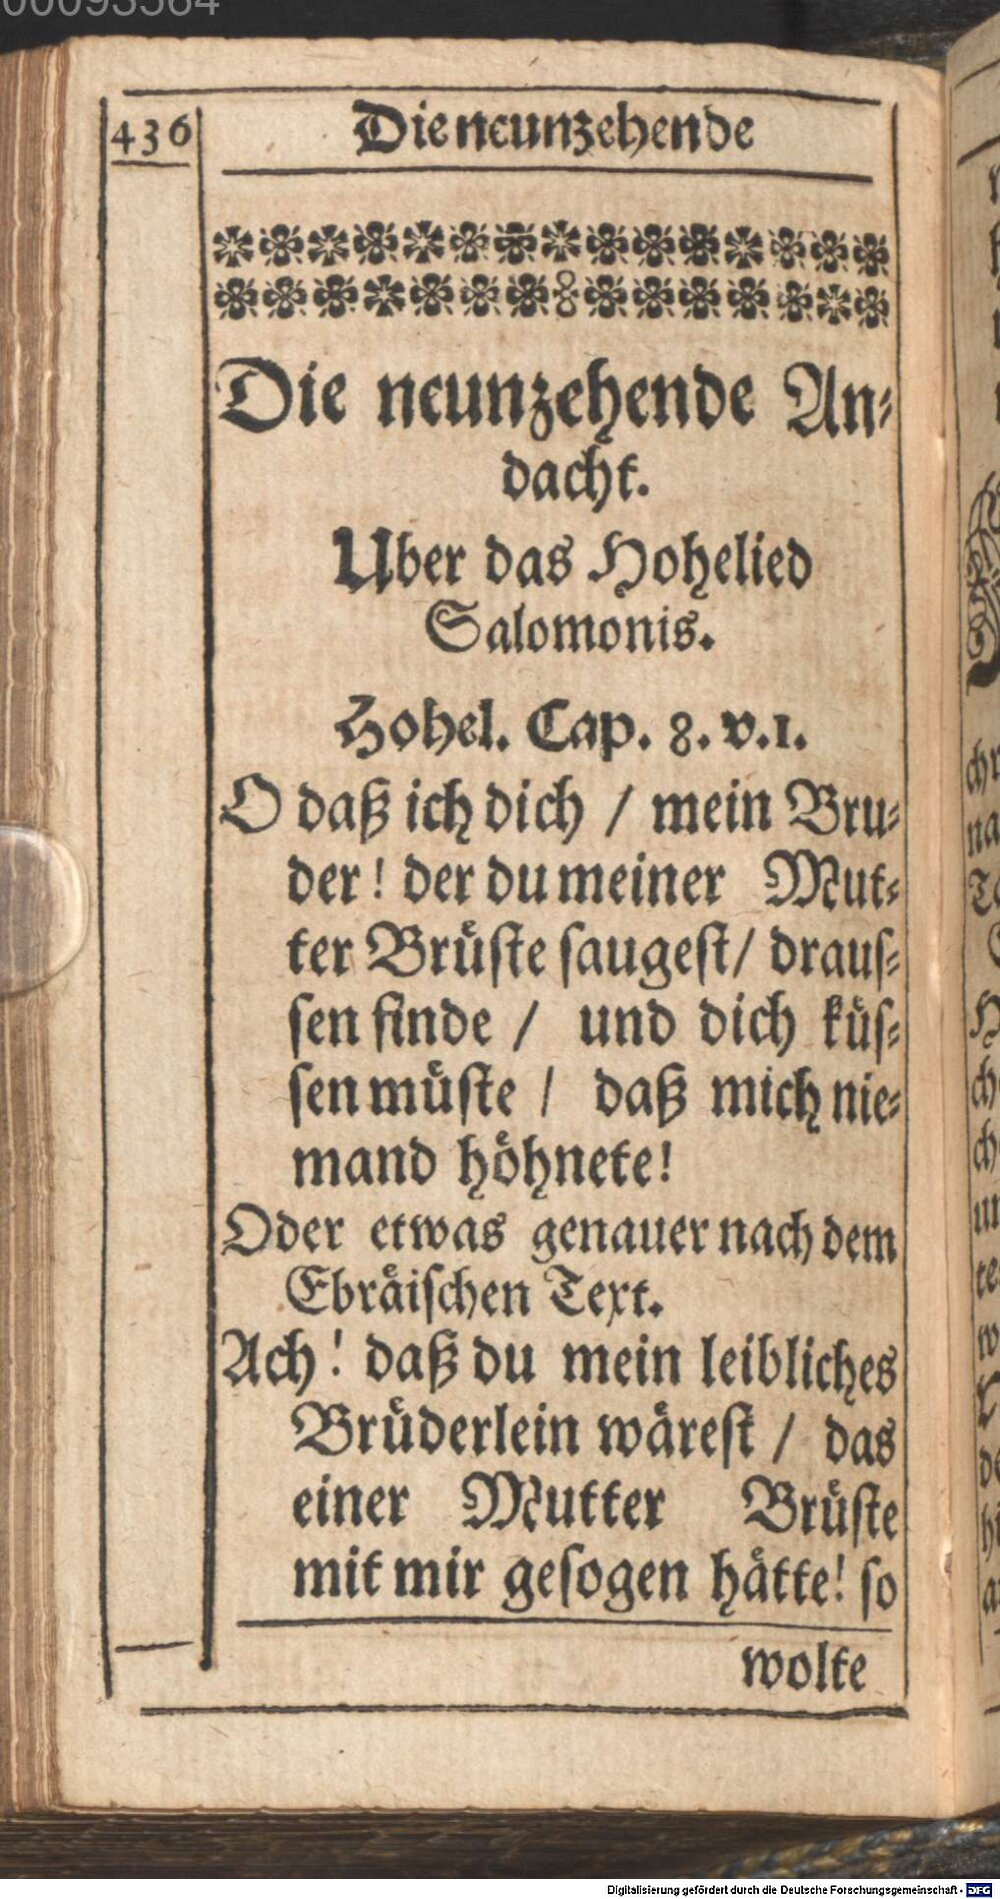 00093564
436
Die neunzehende
Die neunzehende An-
dacht.
Uber das Hohelied
Salomonis.
Hohel. Cap. 8. v. 1.
O daß ich dich / mein Bru-
der! der du meiner Mut-
ter Brüste saugest / draus-
sen finde / und dich küs-
sen müste / daß mich nie-
mand höhnete!
Oder etwas genauer nach dem
Ebräischen Text.
Ach! daß du mein leibliches
Brüderlein wärest / das
einer Mutter Brüste
mit mir gesogen hätte! so
wolte
Digitalisierung gefördert durch die Deutsche Forschungsgemeinschaft - DFG